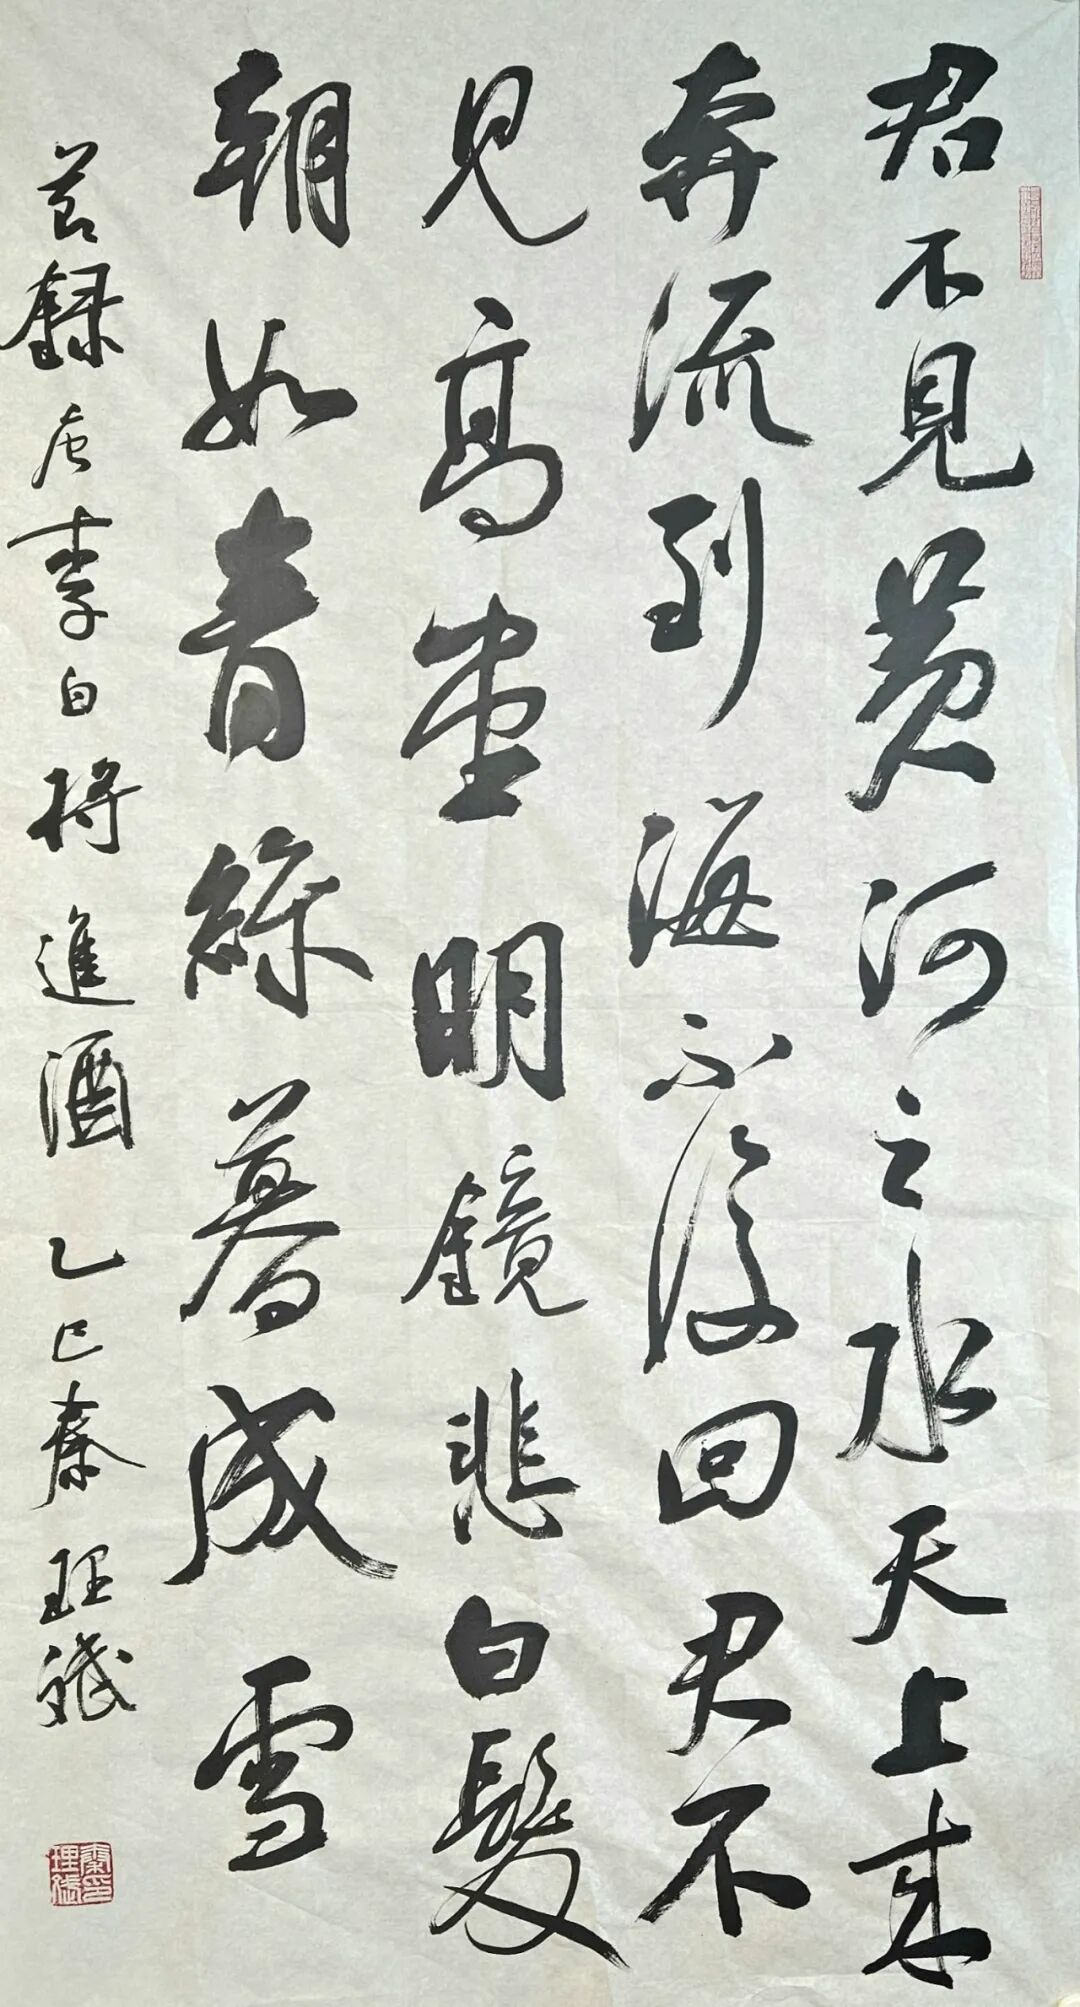 君不見黃河之水天上來
奔流到海不復回君不
見高堂明鏡悲白髮
朝如青絲暮成雪
節錄唐李白將進酒 乙巳秦理斌